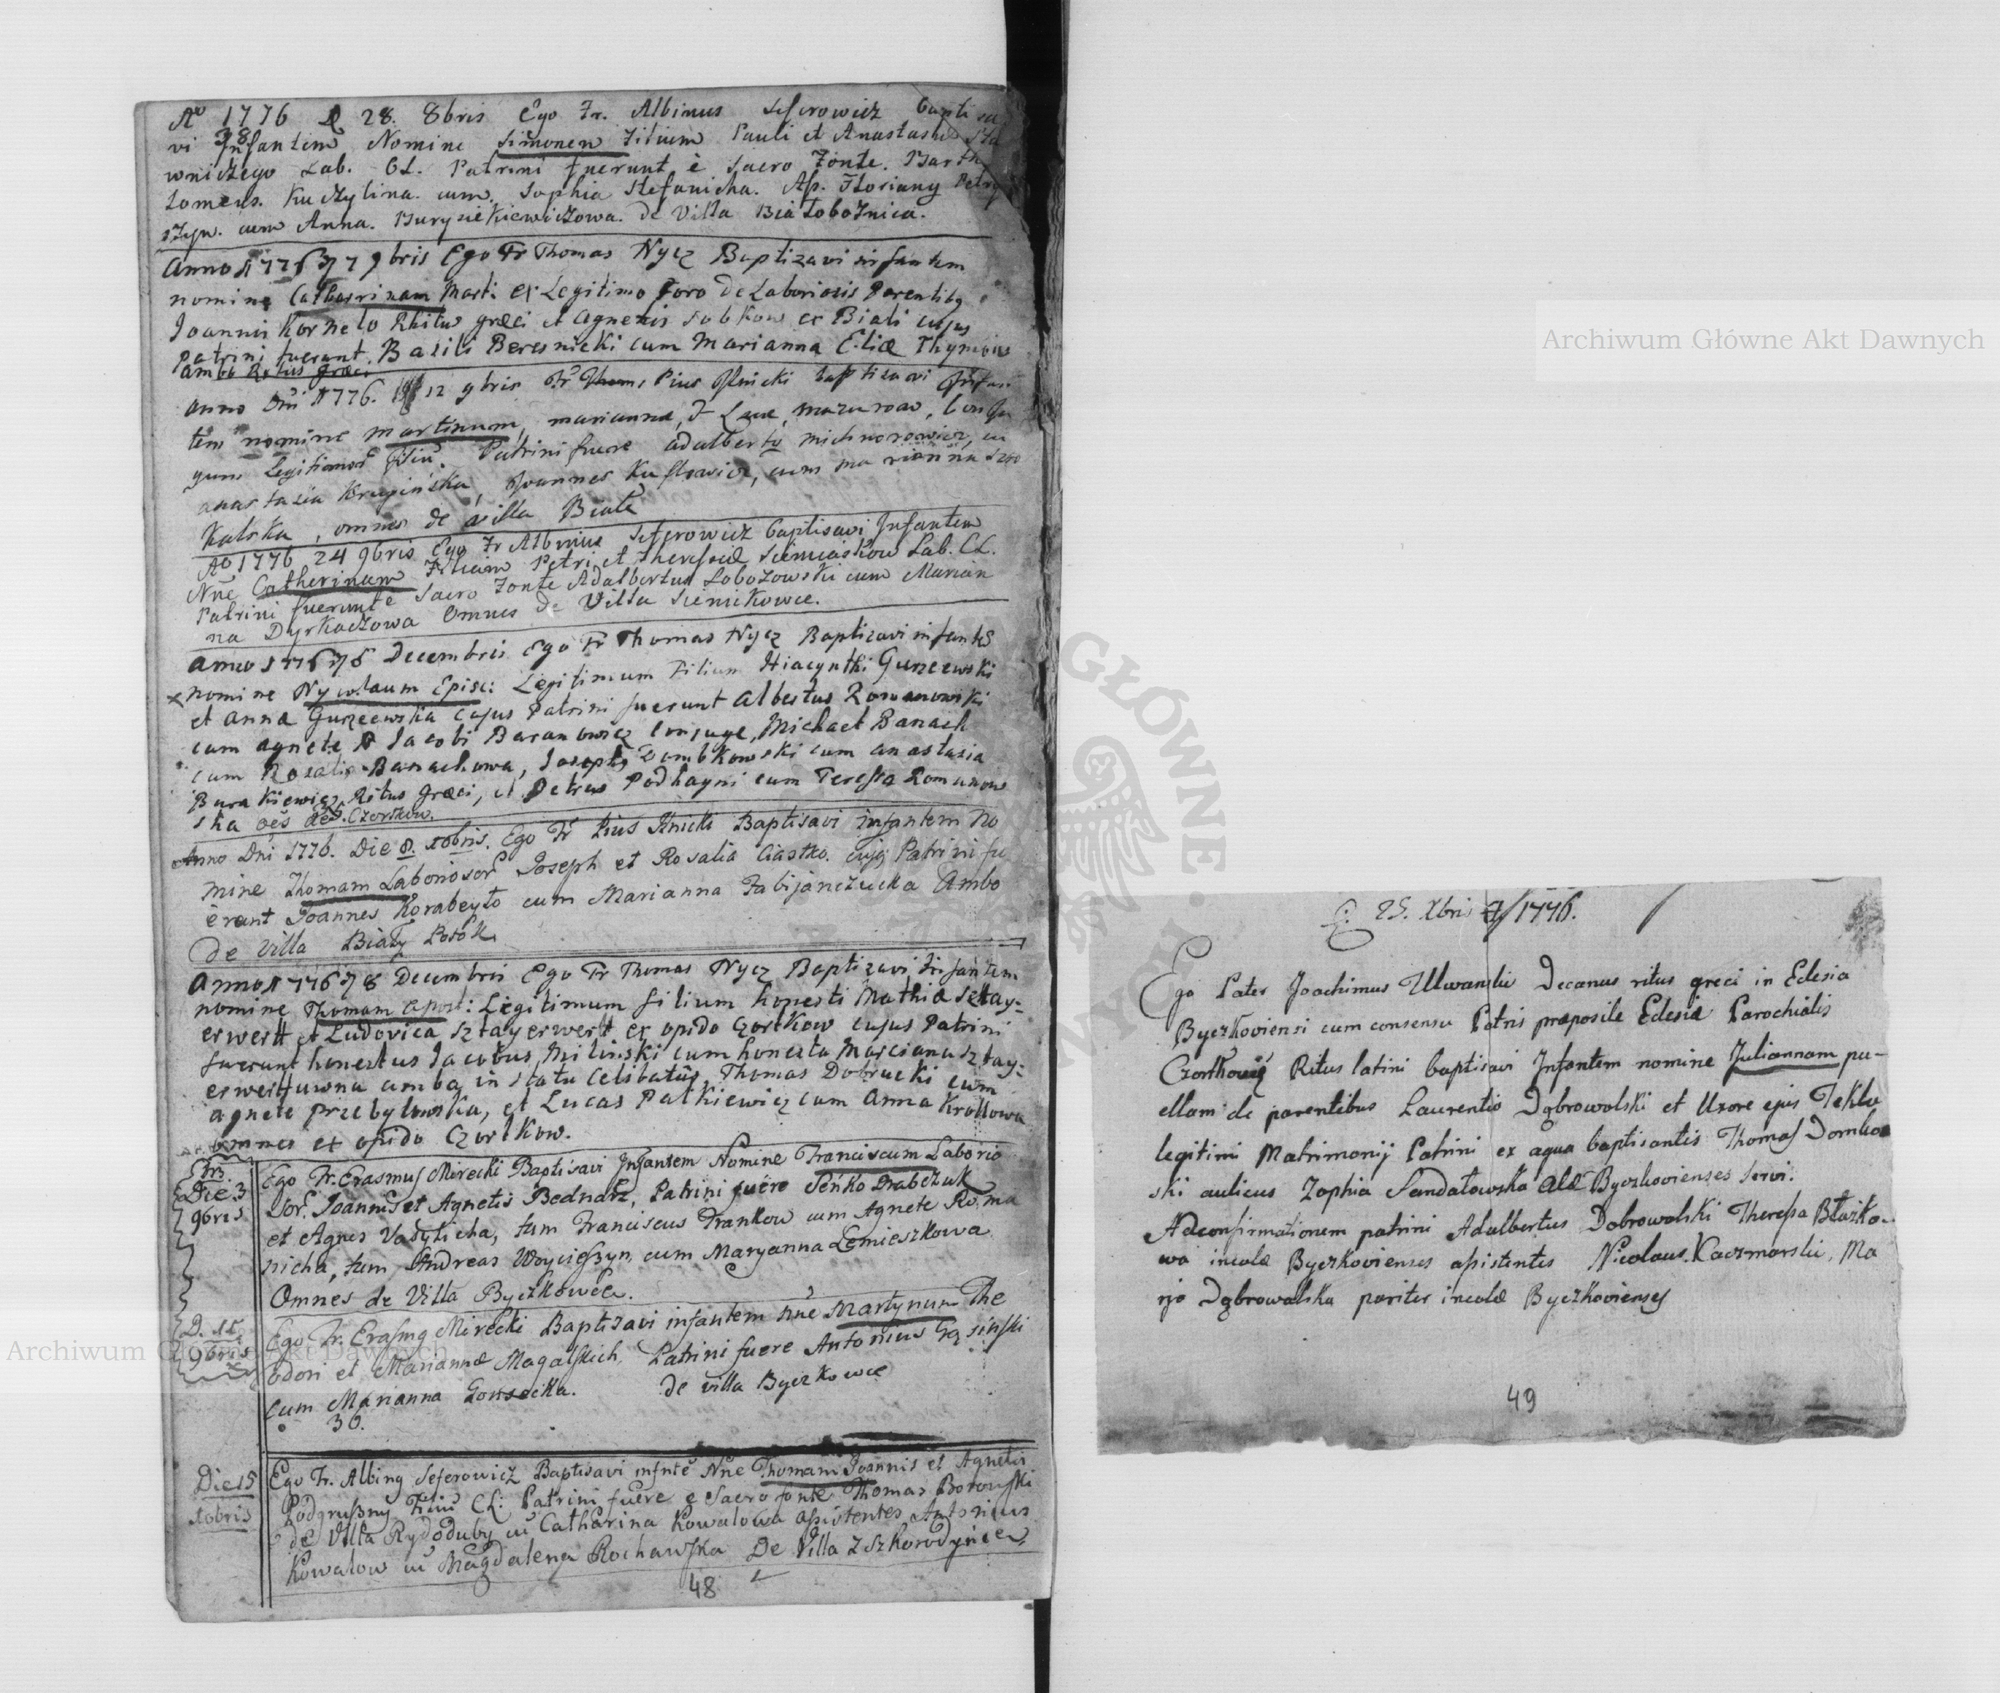 Ao 1776 D 28. 8bris Ego Fr. Albinus Seferowicz Baptisa
vi Infantem Nomine Simonem Filium Pauli et Anastasiae
wniczego Lab. CL. Patrini fuerunt è Sacro Fonte. Barth
lomeus. Kuczylina. cum. Sophia Stefanicha. As. Floriany Petry
szyn. cum Anna. de Villa Białobożnica.
Anno 1776 7 9bris Ego Fr Thomas Nycz Baptizavi infantem
nomine Catharinam Mart: ex Legitimo Toro de Laboriosis Parentibq
Joannis Kornelo Rhitus græci et Agnetis Sobkow ex Biali cujus
Patrini fuerunt Basili Beresnicki cum Marianna Eliæ Thymkow
ambo Ritus Græci
Anno Dni 1776. 12 9bris Fr Thoms Pius Ilnicki baptisavi Infan
tem nomine Martinum, mariannæ, & mazurow, Conju
gum Legitimor Filiu. Patrini fuere adalberty michnorowicz, cu
anastasia Krupińska, Joannes cum marianna
Kalska, omnes de villa Biała
Ao 1776 24 9bris Ego Fr Albinus Seferowicz Baptisavi Infantem
Nne Catherinam Filiam Petri et Theressæ Siemiaskow Lab. CL.
Patrini fuerunt è Sacro Fonte Adalbertus Lobozowski cum Marian
na Dyrkaczowa Omnes de Villa Siemikowce.
Anno 1776 Decembris Ego Fr Thomas Nycz Baptizavi infantes
x nomine Nycolaum Episc: Legitimum Filium Hiacynthi Gurzewski
et Annæ Gurzeewska cujus Patrini fuerunt Albertus Romanowski
cum agnete Jacobi Baranowicz Conjuge, Michael Banach
cum Rosalia Banachowa, Joseph Dombkowski cum anastasia
Burakiewicz Ritus græci, et Petrus Podhayni cum Teressa Romanow
ska oes de Czortkow.
Anno Dni 1776. Die 8. xbris. Ego Fr Pius Ilnicki Baptisavi infantem No
mine Thomam Laboriosor Joseph et Rosalia Ciastko. cujq Patrini fu
erant Joannes Korabeyło cum Marianna Fabijanczucka Ambo
de Villa Biały Potok
Anno 1776 8 Decembris Ego Fr Thomas Nycz Baptizavi Infantem
nomine Thomam Apost: Legitimum filium honesti Mathiæ Sztay-
erwertt et Ludovica Sztayerwertt ex opido Czortkow cujus Patrini
fuerunt honestus Jacobus Miliński cum honesta Marciana Sztay-
erwertuwna amba in statu Celibatûs, Thomas Dobrucki cum
agnete Przebylowska, et Lucas Palkiewicz cum Anna Krollowa
omnes ex opido Czortkow.
Die 3
9bris
Ego Fr. Erasmus Mirecki Baptisavi Infantem Nomine Franciscum Laborio
sor. Joannis et Agnetis Bednarz, Patrini fuere Seńko Drabczuk
et Agnes Vasylicha, tum Franciscus Frankow cum Agnete Roma
nicha, tum Andreas Woycieszyn, cum Maryanna Lemieszkowa
Omnes de Villa Byczkowce.
D. 15
9bris
Ego Fr. Erasmq Mirecki Baptisavi infantem nne Martynum The
odori et Mariannæ Magalskich. Patrini fuere Antonius Gąsiński
cum Marianna Gonsecka. de villa Byczkowce
36.
Die 15
xbris
Ego Fr. Albinq Seferowicz Baptisavi infnte Nne Thomam Joannis et Agnetis
Podgruszny Filiu CL: Patrini fuere e Sacro fonte Thomas Borowski
de Villa Rydoduby cu Catharina Kowalowa assistentes Antonius
Kowalow cu Magdalena Rochawska De Villa Zszkorodyńce
48
D: 25. Xbris 1776.
Ego Pater Joachimus Ulwanski Decanus ritus greci in Eclesia
Byczkoviensi cum consensu Patris præposite Eclesiæ Parochialis
Czortkoviē Ritus latini baptisavi Infantem nomine Juliannam pu-
ellam de parentibus Laurentio Dąbrowolski et Uxore ejus Tekla
legitimi Matrimonij Patrini ex aqua baptisantis Thomas Dombro
ski aulicus Zophia Sandałowska Byczkovienses servi.
Adconfirmationem patrini Adalbertus Dobrowolski Theressa Błażko-
wa incolæ Byczkovienses assistentes Nicolaus Kaczmarski, Ma
rja Dąbrowolska pariter incolæ Byczkovienses
49
Archiwum Główne Akt Dawnych
Archiwum Główne Akt Dawnych